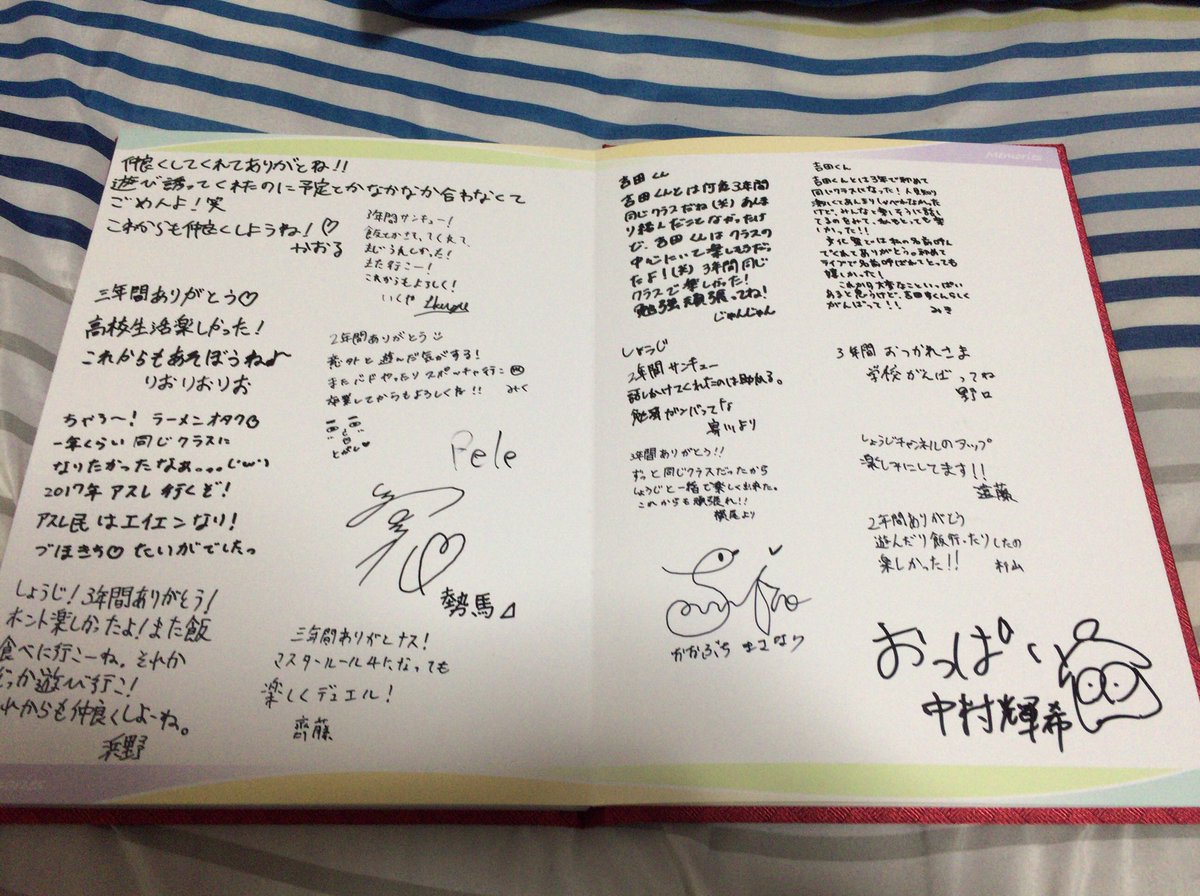 仲良くしてくれてありがとね!!
遊び誘ってくれたのに予定とかなかなか合わなくて
ごめんよ!笑
これからも仲良くしようね!♡
かおる
3年間サンキュー!
飯とかさそってくれて
まじうれしかった!
また行こー!
これからもよろしく!
いくや
三年間ありがとう♡
高校生活楽しかった!
これからもあそぼうね♪
りおりおりお
2年間ありがとう
意外と遊んだ気がする!
またバドやったりスポッチャ行こ
卒業してからもよろしくね!!
みく
とがし
Pele
ちゃろ〜! ラーメンオタク
一年くらい同じクラスに
なりたかったなぁ。。。(´ω`)
2017年 アスレ行くぞ!
アスレ民はエイエンなり!
づほきち♡ たいがでしたっ
勢馬
しょうじ!3年間ありがとう!
ホント楽しかったよ!また飯
食べに行こーね。それか
どっか遊び行こ!
これからも仲良くしよーね。
浜野
三年間ありがとナス!
マスタールール4になっても
楽しくデュエル!
齊藤
memories
吉田くん
吉田くんとは何産3年間
同じクラスだね(笑)あんま
り絡んだことなかったけ
ど、吉田くんはクラスの
中心にいて楽しそうだっ
たよ!(笑)3年間同じ
クラスで楽しかった!
勉強頑張ってね!
じゅんじゅん
しょうじ
2年間サンキュー
話しかけてくれたのは助かる。
勉強ガンバってな
寄川より
3年間ありがとう!!
ずっと同じクラスだったから
しょうじと一緒で楽しく出れた。
これからも頑張れ!!
横尾より
かかぶち
吉田くん
吉田くんとは3年で初めて
同じクラスになった!人見知り
激しくてあんまりしゃべれなかった
けど、みんなと楽しそうに話し
てるのをみて、私もとっても楽
しかった!!
文化祭では私の名前呼ん
でくれてありがとう。初めて
ライブで名前呼ばれてとっても
嬉しかった!
これから大事なこといっぱい
あると思うけど、吉田くんらしく
がんばって!!
みき
3年間おつかれさま
学校がんばってね
野口
しょうじチャンネルのアップ
楽しみにしてます!!
遠藤
2年間ありがとう
遊んだり飯行ったりしたの
楽しかった!!
村山
おっぱい
中村輝希